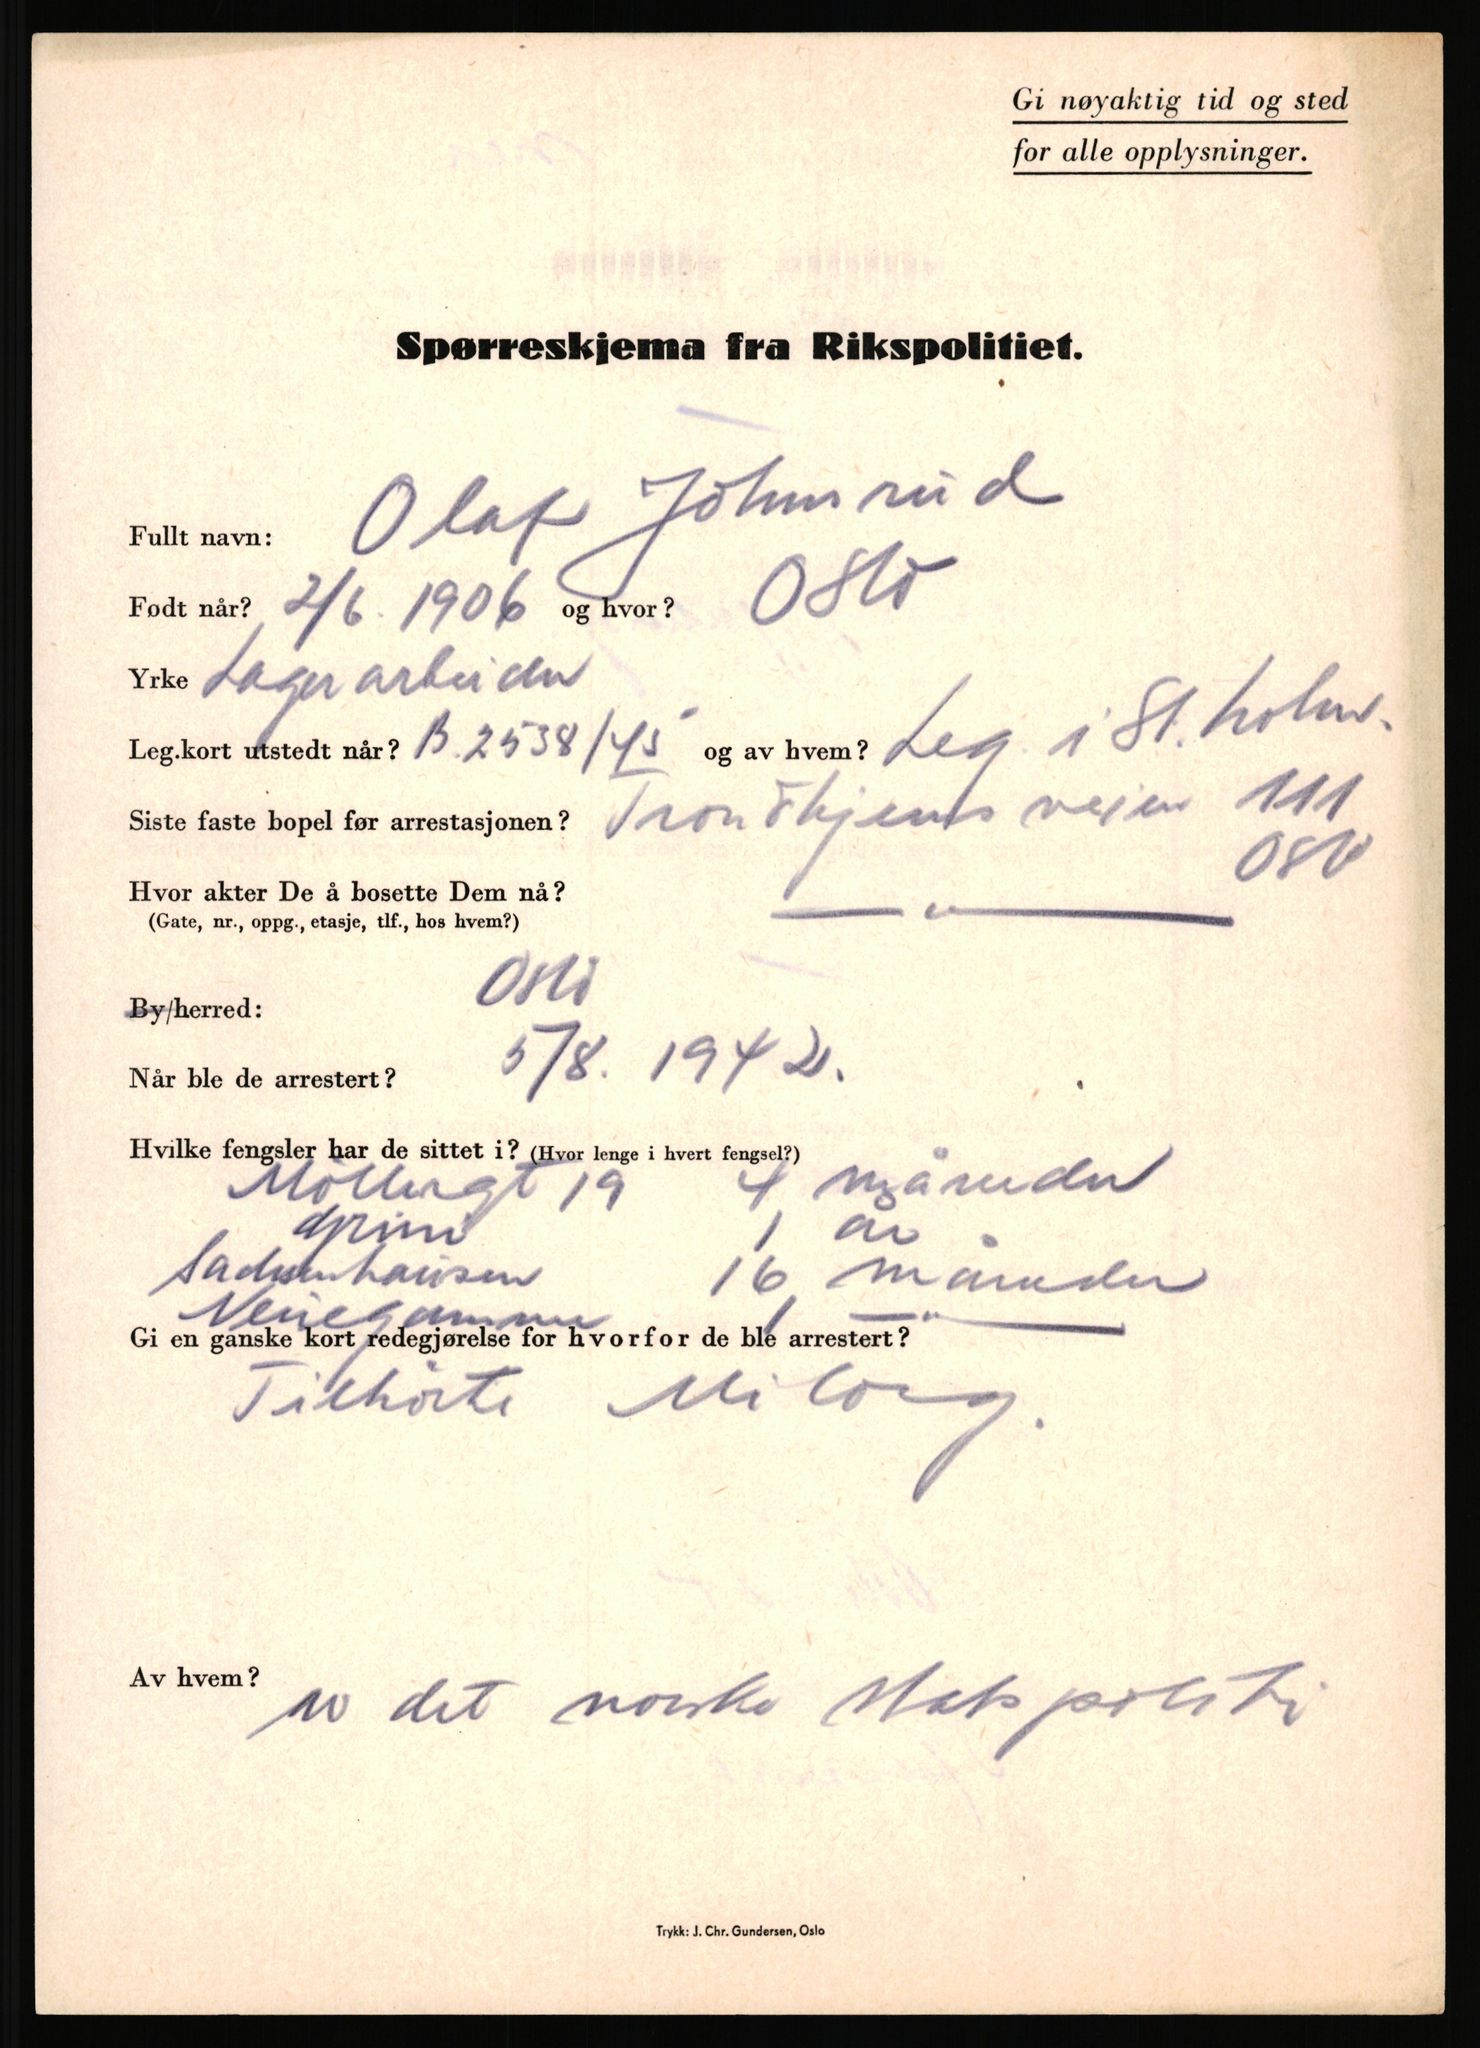 Gi nøyaktig tid og sted
for alle opplysninger.
Spørreskjema fra Rikspolitiet.
Fullt navn: Olaf Johnsrud
Født når? 2/6. 1906 og hvor? Oslo
Yrke Lagerarbeider
Leg.kort utstedt når? B.2538/45 og av hvem? Leg. i St.holm.
Siste faste bopel før arrestasjonen? Trondhjemsveien 111
Oslo
Hvor akter De å bosette Dem nå? — " —
(Gate, nr., oppg., etasje, tlf., hos hvem?)
By/herred: Oslo
Når ble de arrestert? 5/8. 1942.
Hvilke fengsler har de sittet i? (Hvor lenge i hvert fengsel?)
Möllergt 19 4 måneder
Grini 1 år
Sachsenhausen 16 måneder
Neuegamme 1 — " —
Gi en ganske kort redegjørelse for hvorfor de ble arrestert?
Tilhörte Milorg.
Av hvem? av det norske statspoliti
Trykk: J. Chr. Gundersen, Oslo